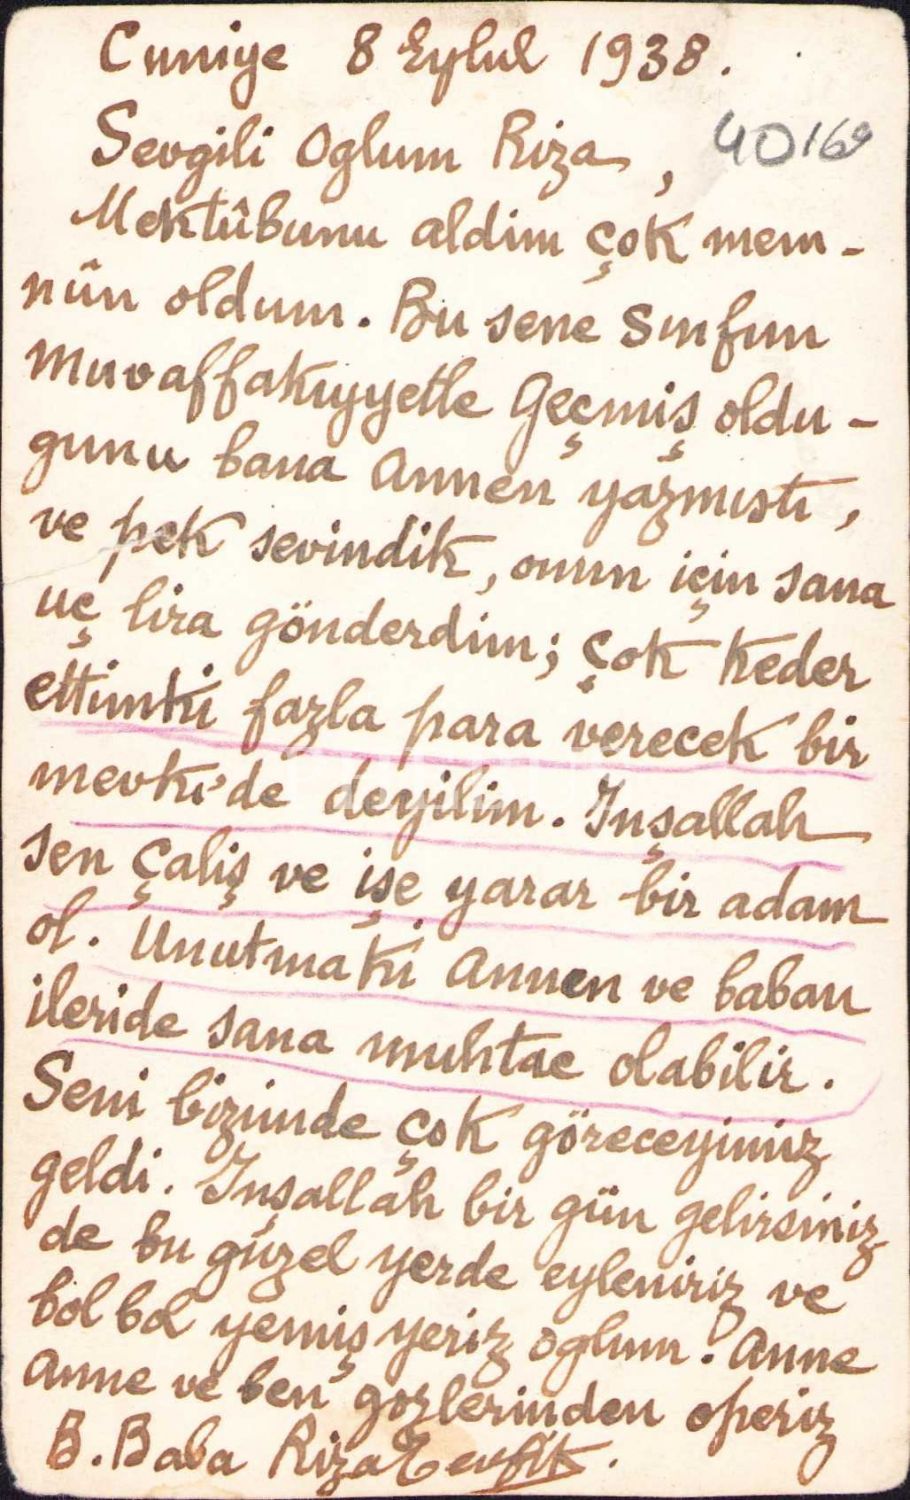 Cuniye 8 Eylul 1938.
Sevgili Oglum Riza, 40169
Mektûbunu aldim çok mem-
nûn oldum. Bu sene Sınfun
Muvaffakıyyetle Geçmiş oldu-
gunu bana Annen yazmıstı,
ve pek sevindik, onun için sana
uç lira gönderdim; Çok Keder
ettimki fazla para verecek bir
mevki'de deyilim. Inşallah
sen Çaliş ve işe yarar bir adam
ol. Unutmaki Annen ve baban
ileride sana muhtac olabilir.
Seni bizimde çok göreceyimiz
geldi. Inşallah bir gün gelirsiniz
de bu güzel yerde eyleniriz ve
bol bol yemiş yeriz oglum. Anne
Anne ve ben gozlerinden operiz
B. Baba Riza Tevfik.